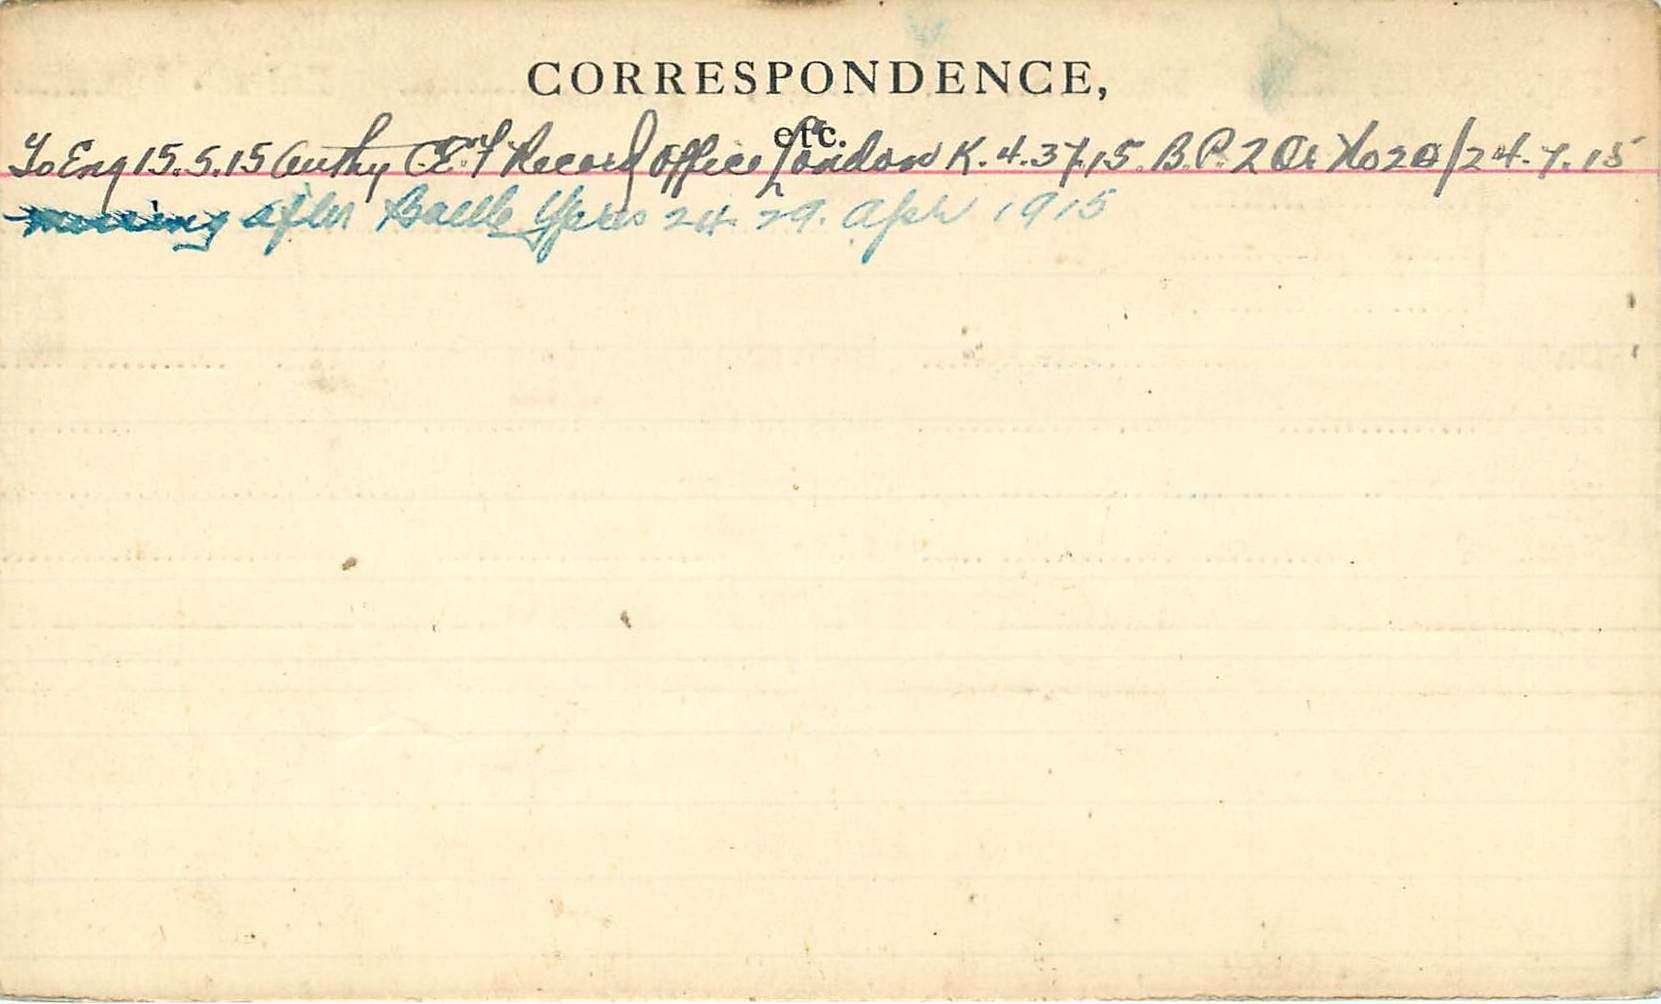 CORRESPONDENCE,
etc.
To Eng 15.5.15 Authy C.E.F Record Office London K. 4.37.15. B.P. 2 Or No 20/24.7.15
missing after Battle Ypres 24. 29. Apr 1915